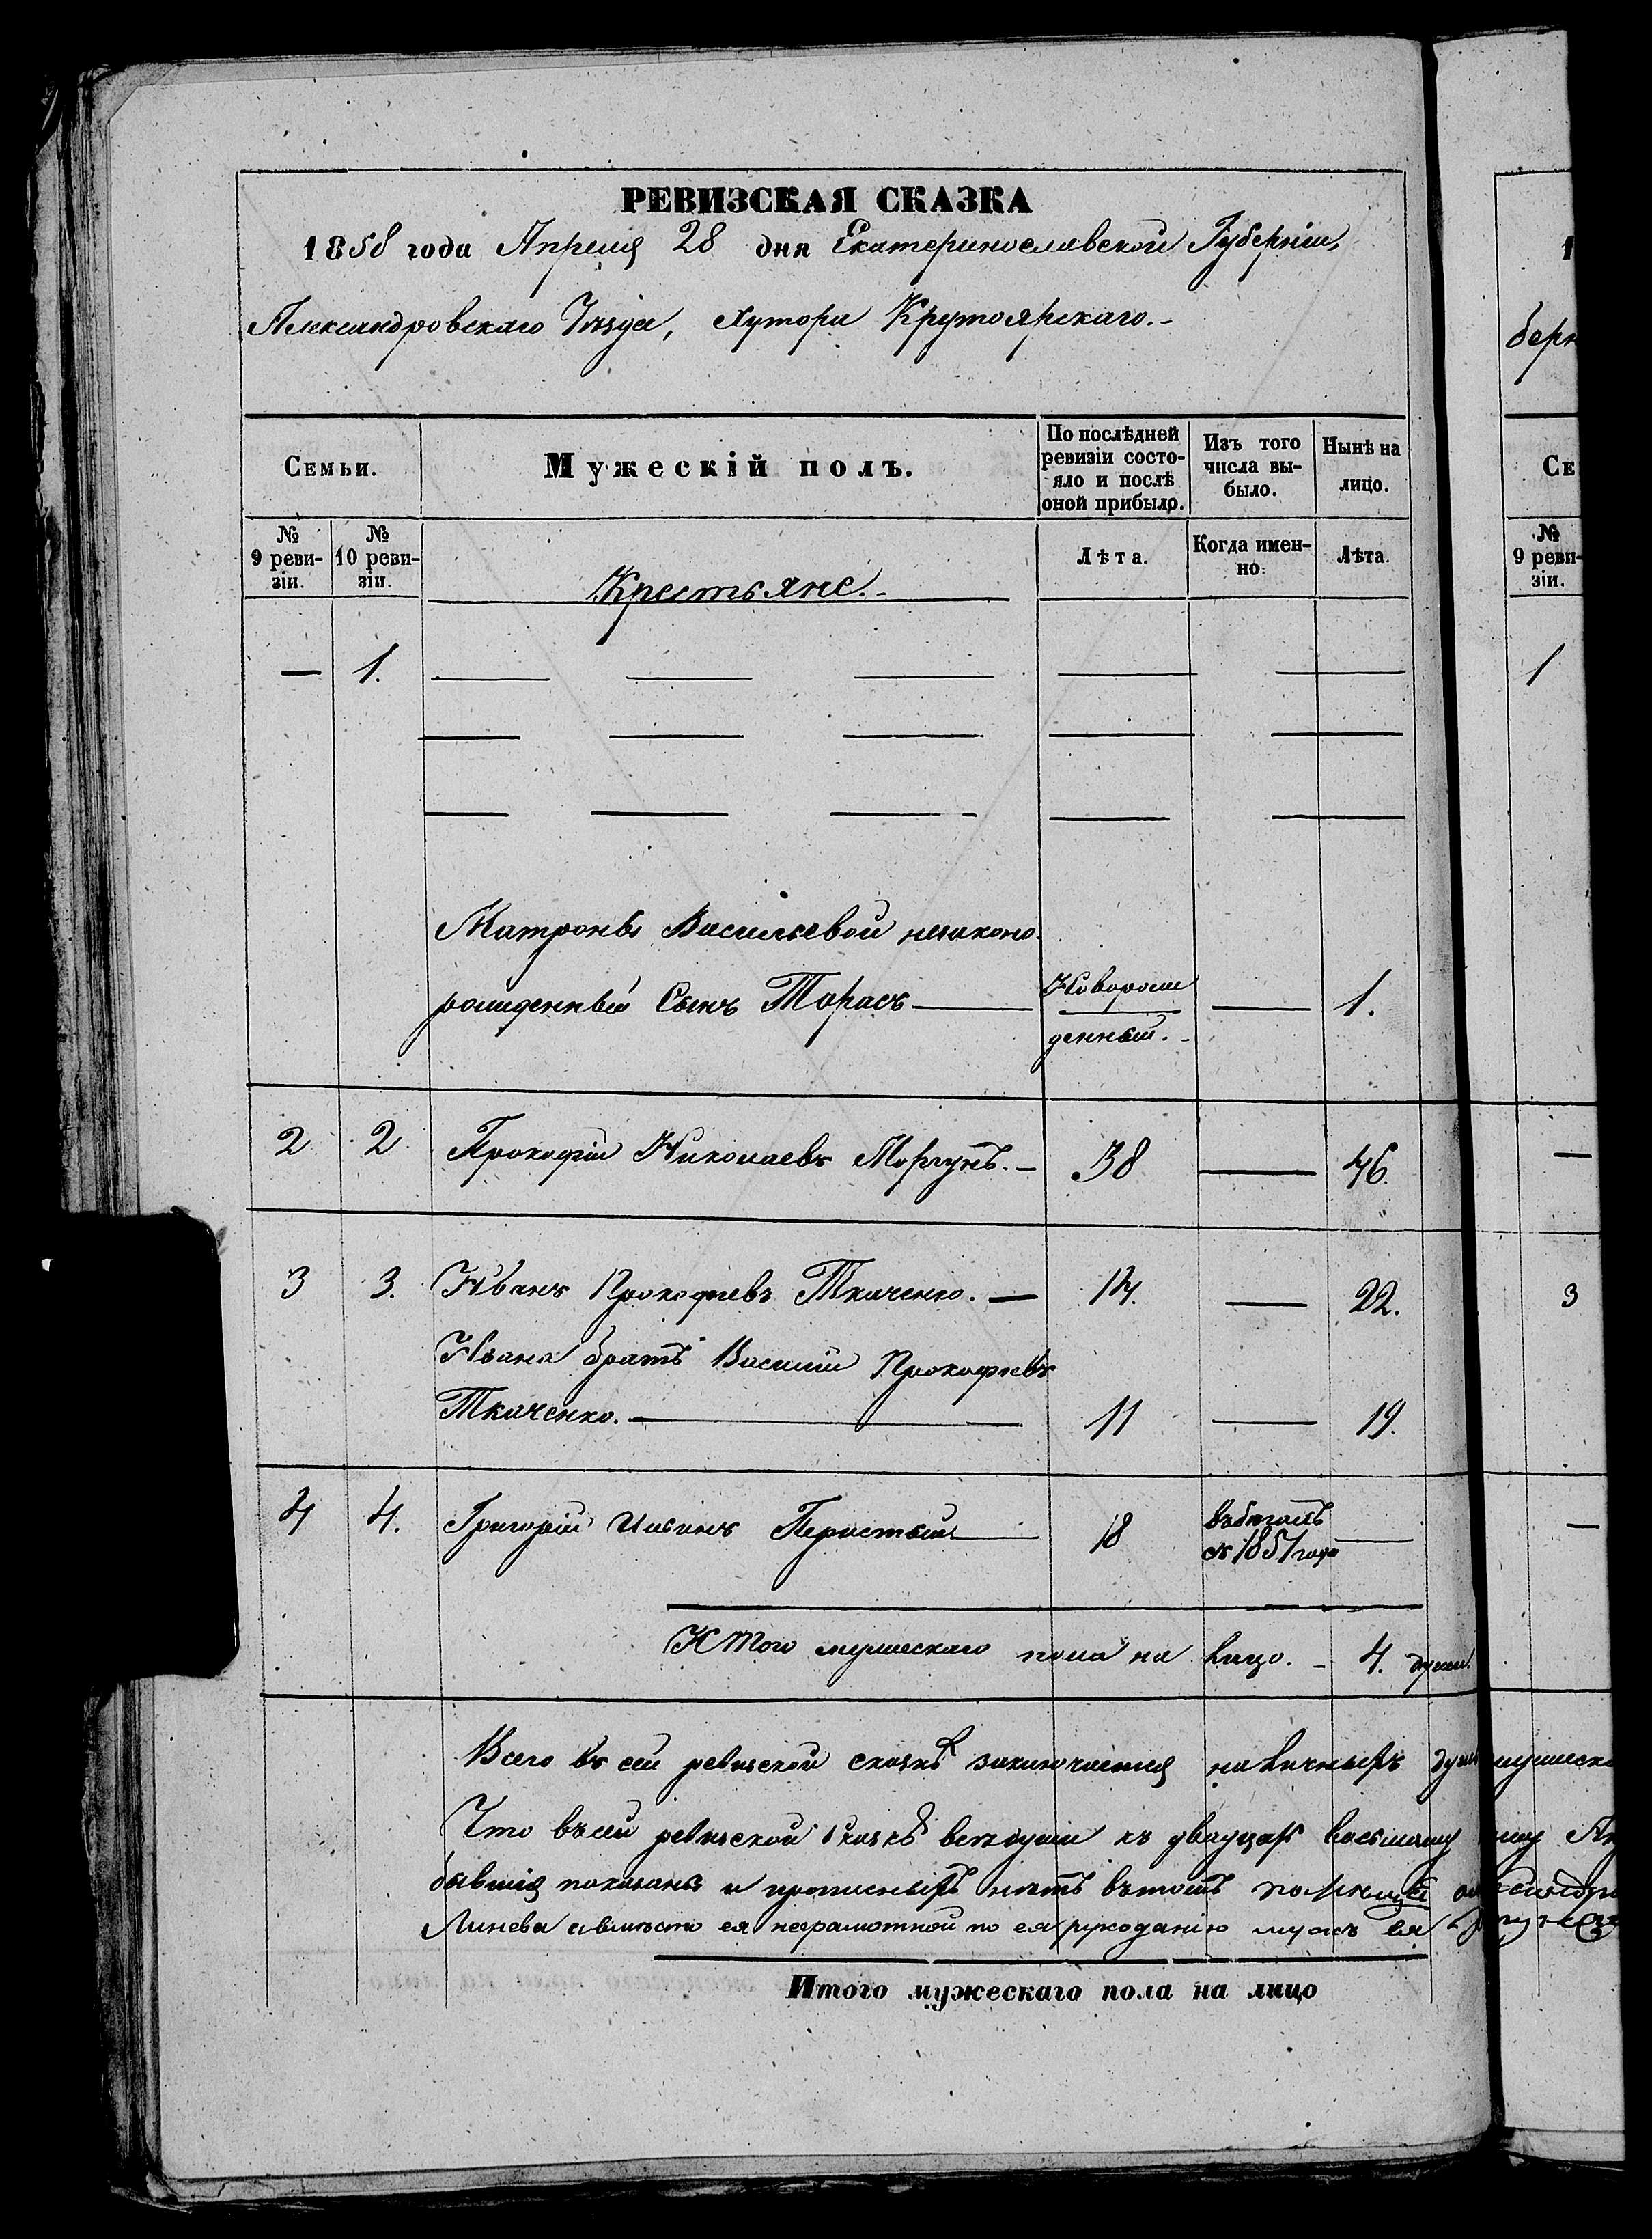 РЕВИЗСКАЯ СКАЗКА
1858 года Апреля 28 дня Екатеринославской Губерніи,
Александровскаго Уезда, Хутора Крутоярскаго.-
Семьи.
Мужескій полъ.
По послѣдней ревизіи состояло и послѣ оной прибыло.
Изъ того числа выбыло.
Нынѣ на лицо.
№ 9 ревизіи.
№ 10 ревизіи.
Крестьяне.-
Лѣта.
Когда именно:
Лѣта.
— 1.
Матроны Васильевой незаконо-
рожденный Сынъ Тарасъ — Новорож — 1.
денный.-
2 2 Прокофій Николаевъ Моргунъ.- 38 — 46.
3 3. Иванъ Прокофіевъ Ткаченко. — 14. — 22.
Ивана братъ Василій Прокофіевъ
Ткаченко. — 11 — 19.
4 4. Григорій Ивановъ 18 въ бегахъ —
съ 1851 года
Итого мужескаго пола на лицо. - 4. души.
Всего въ сей ревизской сказкѣ заключается наличныхъ душъ мужеска
Что въ сей ревизской сказкѣ все души къ двадцать восьмому
бывшія показаны и прописныхъ нѣтъ въ томъ
Линева а вместо ея неграмотной по ея рукоданію мужъ ея
Итого мужескаго пола на лицо
1
берн
Се
№ 9 ревизіи.
1
—
3
—